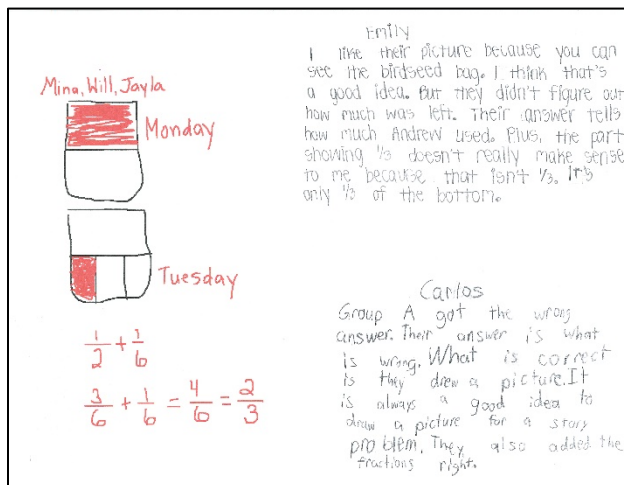 Mina, Will, Jayla
Monday
Tuesday
1/2 + 1/6
3/6 + 1/6 = 4/6 = 2/3
Emily
I like their picture because you can
see the birdseed bag. I think that's
a good idea. But they didn't figure out
how much was left. Their answer tells
how much Andrew used. Plus, the part
showing 1/3 doesn't really make sense
to me because that isn't 1/3. It's
only 1/3 of the bottom.
Carlos
Group A got the wrong
answer. Their answer is what
is wrong. What is correct
is they drew a picture. It
is always a good idea to
draw a picture for a story
problem. They also added the
fractions right.